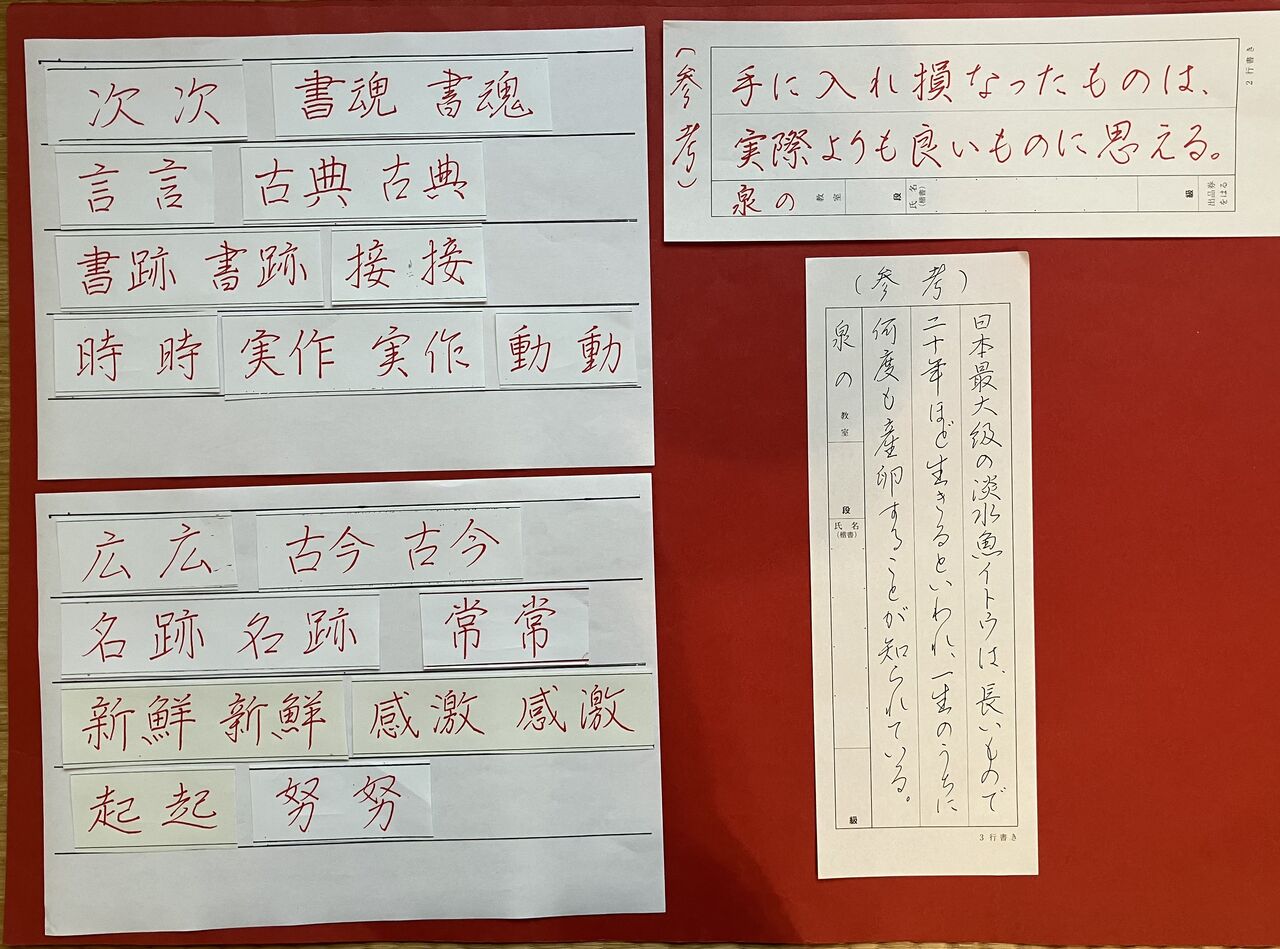 次 次 書魂 書魂
言 言 古典 古典
書跡 書跡 接 接
時 時 実作 実作 動 動
広 広 古今 古今
名跡 名跡 常 常
新鮮 新鮮 感激 感激
起 起 努 努
(参考)
手に入れ損なったものは、
実際よりも良いものに思える。
泉の 教室 段 氏名(楷書) 級 出品券をはる
2行書き
(参考)
日本最大級の淡水魚イトウは、長いもので
二十年ほど生きるといわれ、一生のうちに
何度も産卵することが知られている。
泉の 教室 段 氏名(楷書) 級
3行書き